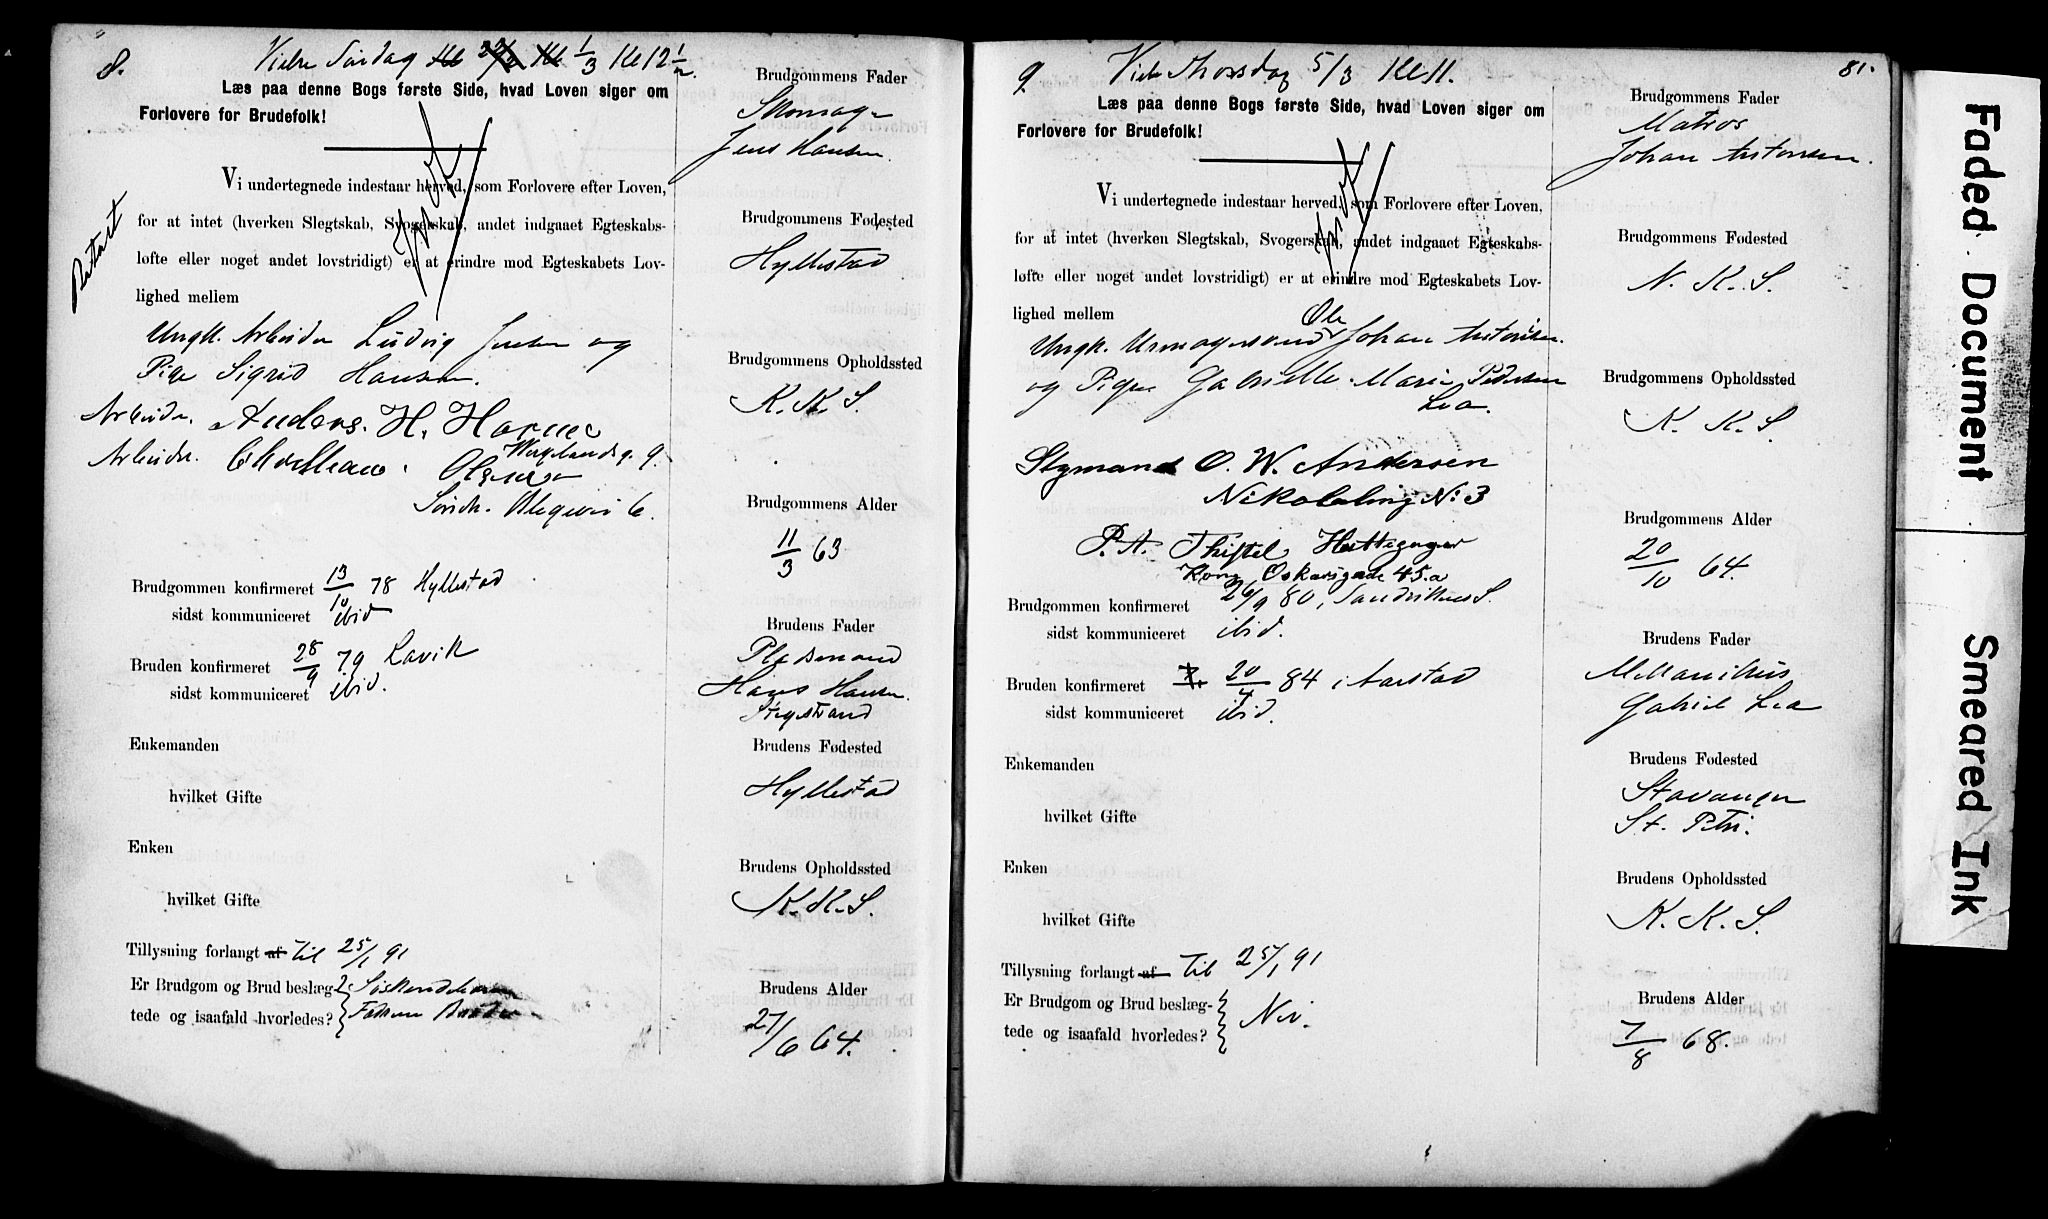 8.
Vielse Søndag Kl 1/3 Kl 12 1/2.
Læs paa denne Bogs første Side, hvad Loven siger om
Forlovere for Brudefolk!
Vi undertegnede indestaar herved, som Forlovere efter Loven,
for at intet (hverken Slegtskab, Svogerskab, andet indgaaet Egteskabs-
løfte eller noget andet lovstridigt) er at erindre mod Egteskabets Lov-
lighed mellem
Ungk. Arbeider Ludvig Jensen og
Pige Sigrid Hansen.
Arbeider. Anders. H.
Arbeider. Olsen
6.
Brudgommen konfirmeret 13/10 78 Hyllestad
sidst kommuniceret ibid
Bruden konfirmeret 28/9 79 Lavik
sidst kommuniceret ibid.
Enkemanden
hvilket Gifte
Enken
hvilket Gifte
Tillysning forlangt af til 25/1 91
Er Brudgom og Brud beslæg-
tede og isaafald hvorledes?
Brudgommens Fader
Skomager
Jens Hansen.
Brudgommens Fødested
Hyllestad
Brudgommens Opholdssted
K. K. S.
Brudgommens Alder
11/3 63
Brudens Fader
Pladsmand
Hans Hansen.
Brudens Fødested
Hyllestad
Brudens Opholdssted
K. K. S.
Brudens Alder
27/6 64.
9
Vielse Thorsdag 5/3 Kl 11.
81.
Læs paa denne Bogs første Side, hvad Loven siger om
Forlovere for Brudefolk!
Vi undertegnede indestaar herved, som Forlovere efter Loven,
for at intet (hverken Slegtskab, Svogerskab, andet indgaaet Egteskabs-
løfte eller noget andet lovstridigt) er at erindre mod Egteskabets Lov-
lighed mellem
Ole
Ungk. Urmagersvend Johan Antonsen.
og Pige Gabrielle Marie Pedersen
Lea.
Styrmand O. W. Andersen
N: 3
P. A. Thistel
Kong Oskarsgade 45.a
Brudgommen konfirmeret 26/9 80 i Sandvikens S.
sidst kommuniceret ibid.
Bruden konfirmeret 20/4 84 i Aarstad
sidst kommuniceret ibid.
Enkemanden
hvilket Gifte
Enken
hvilket Gifte
Tillysning forlangt af til 25/1 91
Er Brudgom og Brud beslæg-
tede og isaafald hvorledes? Nei.
Brudgommens Fader
Matros
Johan Antonsen.
Brudgommens Fødested
N. K. S.
Brudgommens Opholdssted
K. K. S.
Brudgommens Alder
20/10 64.
Brudens Fader
Mekanikus
Gabriel Lea
Brudens Fødested
Stavanger
St. Petri.
Brudens Opholdssted
K. K. S.
Brudens Alder
7/8 68.
Faded Document
Smeared Ink